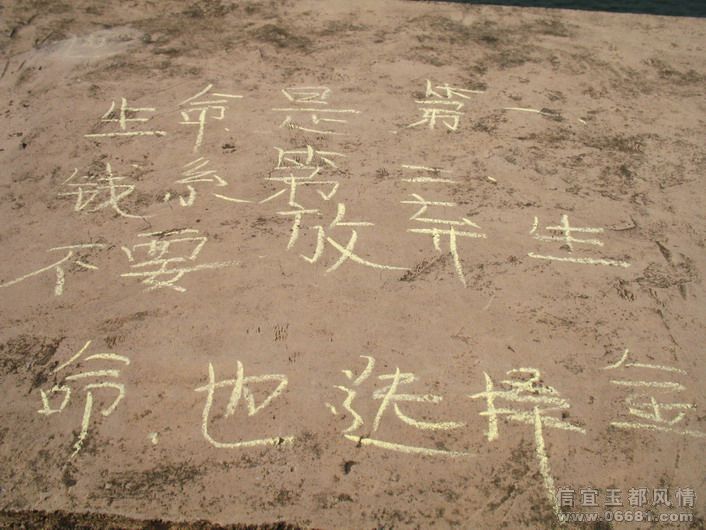 生命是第一.
钱系第二.
不要放弃生
命.也选择金
信宜玉都风情
www.06681.com